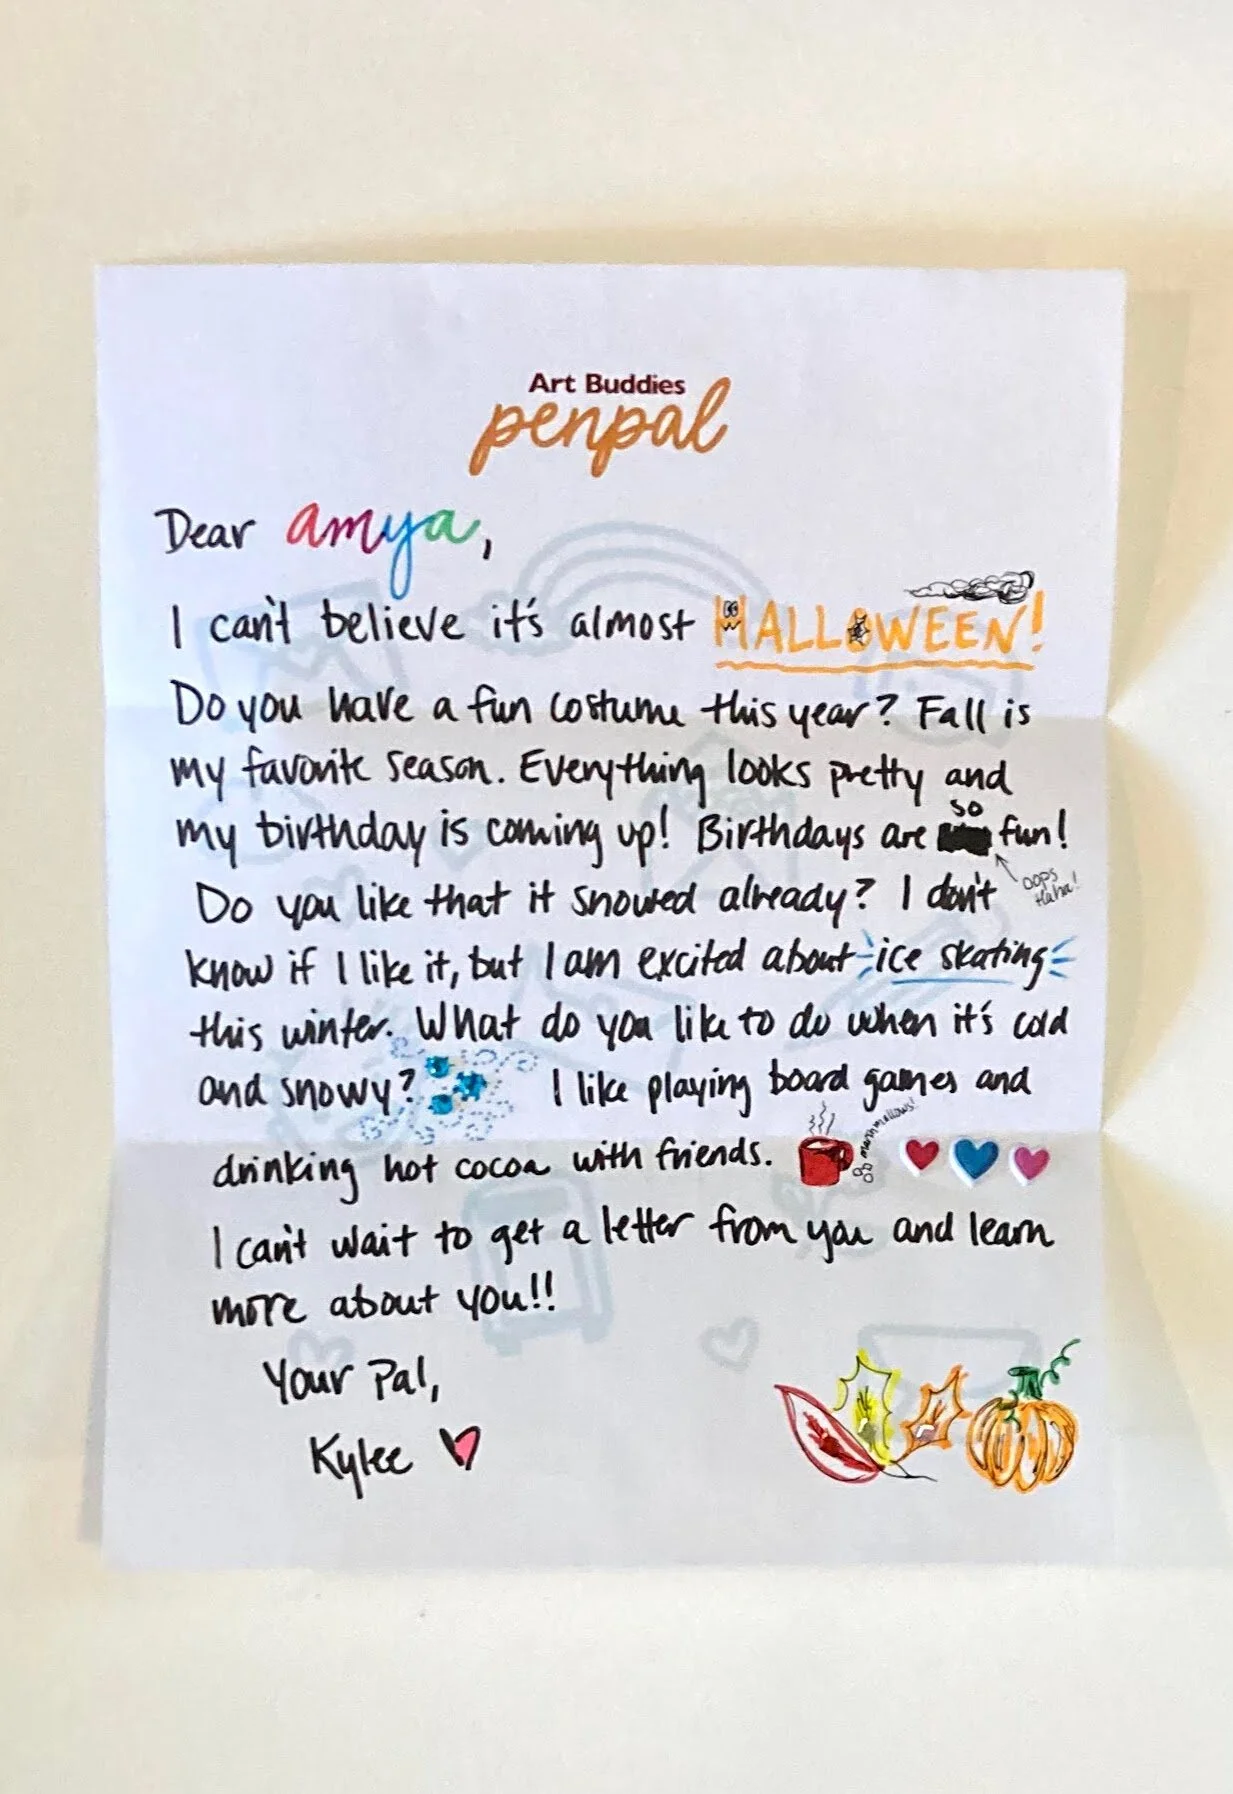 Art Buddies
penpal
Dear amya,
I can't believe it's almost HALLOWEEN!
Do you have a fun costume this year? Fall is
my favorite season. Everything looks pretty and
my birthday is coming up! Birthdays are so fun!
oops
Haha!
Do you like that it snowed already? I don't
know if I like it, but I am excited about ice skating
this winter. What do you like to do when it's cold
and snowy? I like playing board games and
drinking hot cocoa with friends.
marshmallows!
I can't wait to get a letter from you and learn
more about you!!
Your Pal,
Kylee